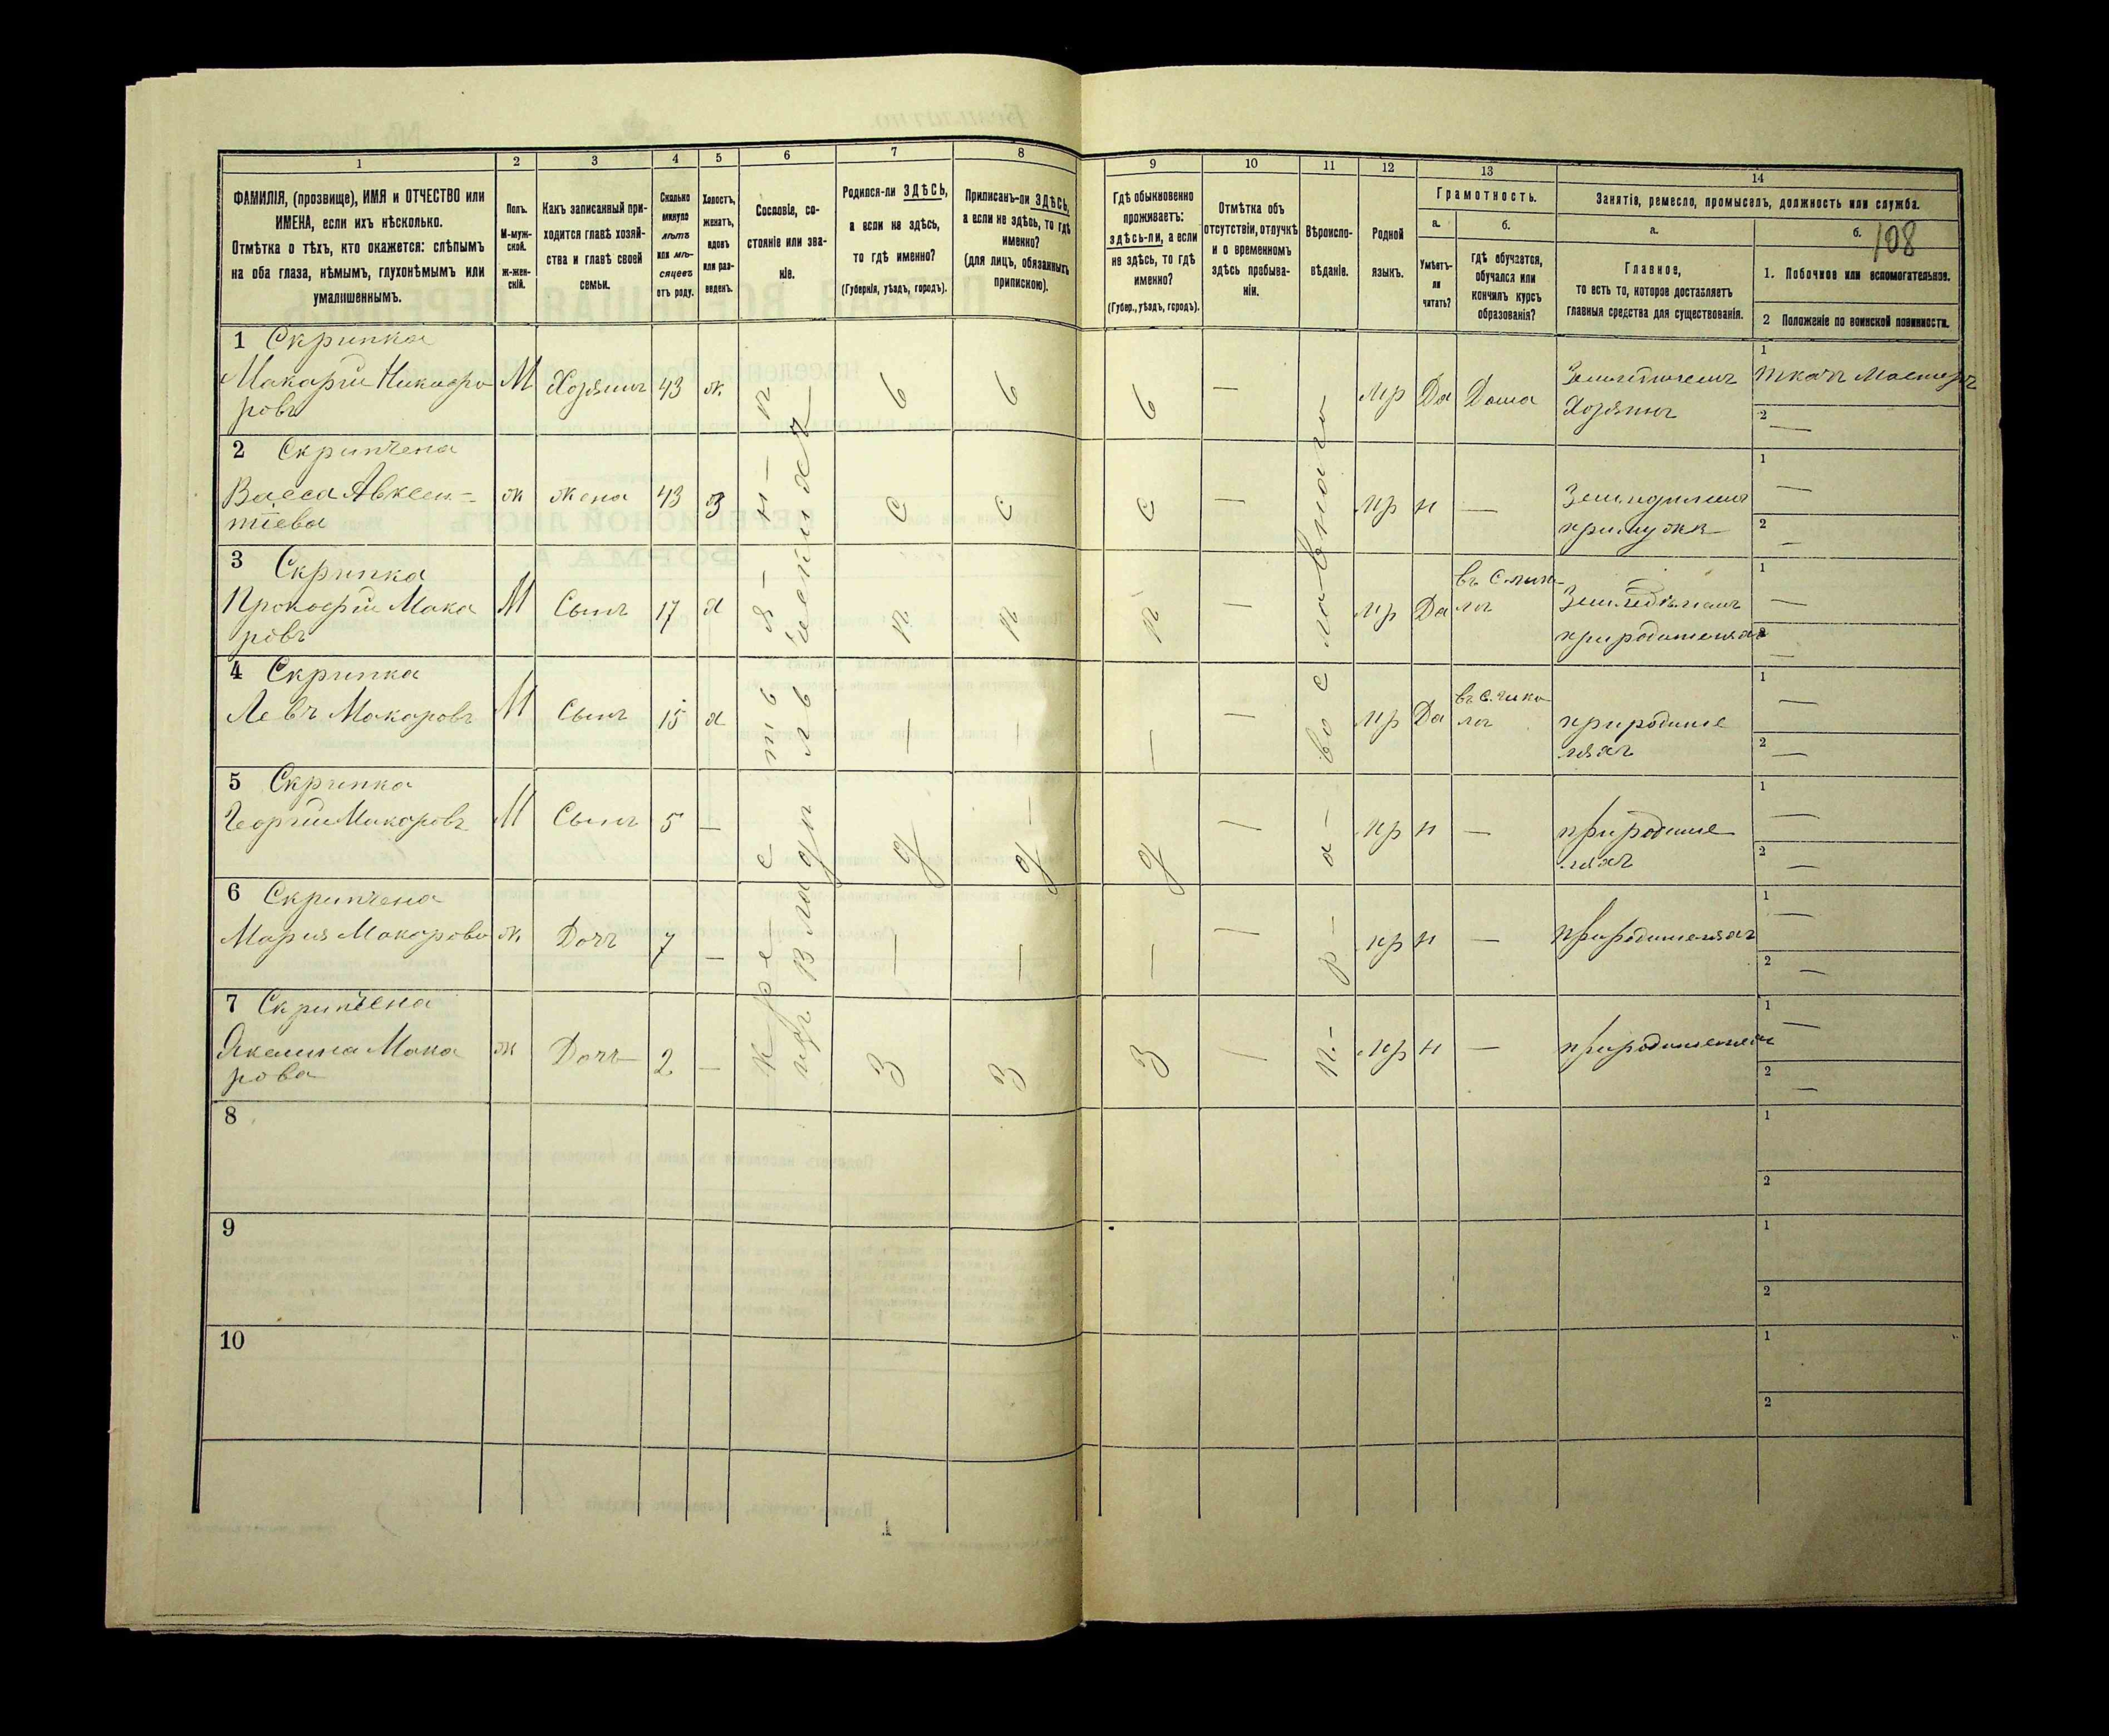 1 2 3 4 5 6 7 8 9 10 11 12 13 14
ФАМИЛІЯ, (прозвище), ИМЯ и ОТЧЕСТВО или
ИМЕНА, если ихъ нѣсколько.
Отмѣтка о тѣхъ, кто окажется: слѣпымъ
на оба глаза, нѣмымъ, глухонѣмымъ или
умалишеннымъ.
Полъ.
М-муж-
ской.
ж-жен-
скій.
Какъ записанный при-
ходится главѣ хозяй-
ства и главѣ своей
семьи.
Сколько
минуло
лѣтъ
или мѣ-
сяцевъ
отъ роду.
Холостъ,
женатъ,
вдовъ
или раз-
веденъ.
Сословіе, со-
стояніе или зва-
ніе.
Родился-ли ЗДѢСЬ,
а если не здѣсь,
то гдѣ именно?
(Губернія, уѣздъ, городъ).
Приписанъ-ли ЗДѢСЬ,
а если не здѣсь, то гдѣ
именно?
(для лицъ, обязанныхъ
припискою).
Гдѣ обыкновенно
проживаетъ:
здѣсь-ли, а если
не здѣсь, то гдѣ
именно?
(Губер., уѣздъ, городъ).
Отмѣтка объ
отсутствіи, отлучкѣ
и о временномъ
здѣсь пребыва-
ніи.
Вѣроиспо-
вѣданіе.
Родной
языкъ.
Грамотность.
а.
Умѣетъ-
ли
читать?
б.
гдѣ обучается,
обучался или
кончилъ курсъ
образованія?
Занятія, ремесло, промыселъ, должность или служба.
а.
Главное,
то есть то, которое доставляетъ
главныя средства для существованія.
б.
108
1. Побочное или вспомогательное.
2 Положеніе по воинской повинности.
1 Скрипка
Макарій Никифо
ровъ
М Хозяинъ 43 ж. мр Да Дома
Хозяинъ
1 ткачъ Мастеръ
2 —
2 Скрипчена
Васса Авксен-
тіева
ж жена 43 з мр н —
при мужѣ
1 —
2 —
3 Скрипка
Прокофій Мака
ровъ
М Сынъ 17 х мр Да
при родителяхъ
1 —
2 —
4 Скрипка
Левъ Макаровъ
М Сынъ 15 х мр Да
при родите
ляхъ
1 —
2 —
5 Скрипка
Георгій Макаровъ
М Сынъ 5 — мр н —
при родите
ляхъ
1 —
2 —
6 Скрипчена
Марія Макарова
ж. Дочь 7 — мр н —
при родителяхъ
1 —
2 —
7 Скрипчена
Акелина Мака
рова
ж Дочь 2 — мр н —
при родителяхъ
1 —
2 —
крестьянинъ
изъ владѣльческихъ
здѣсь
здѣсь
здѣсь
православнаго
8 1
2
9 1
2
10 1
2